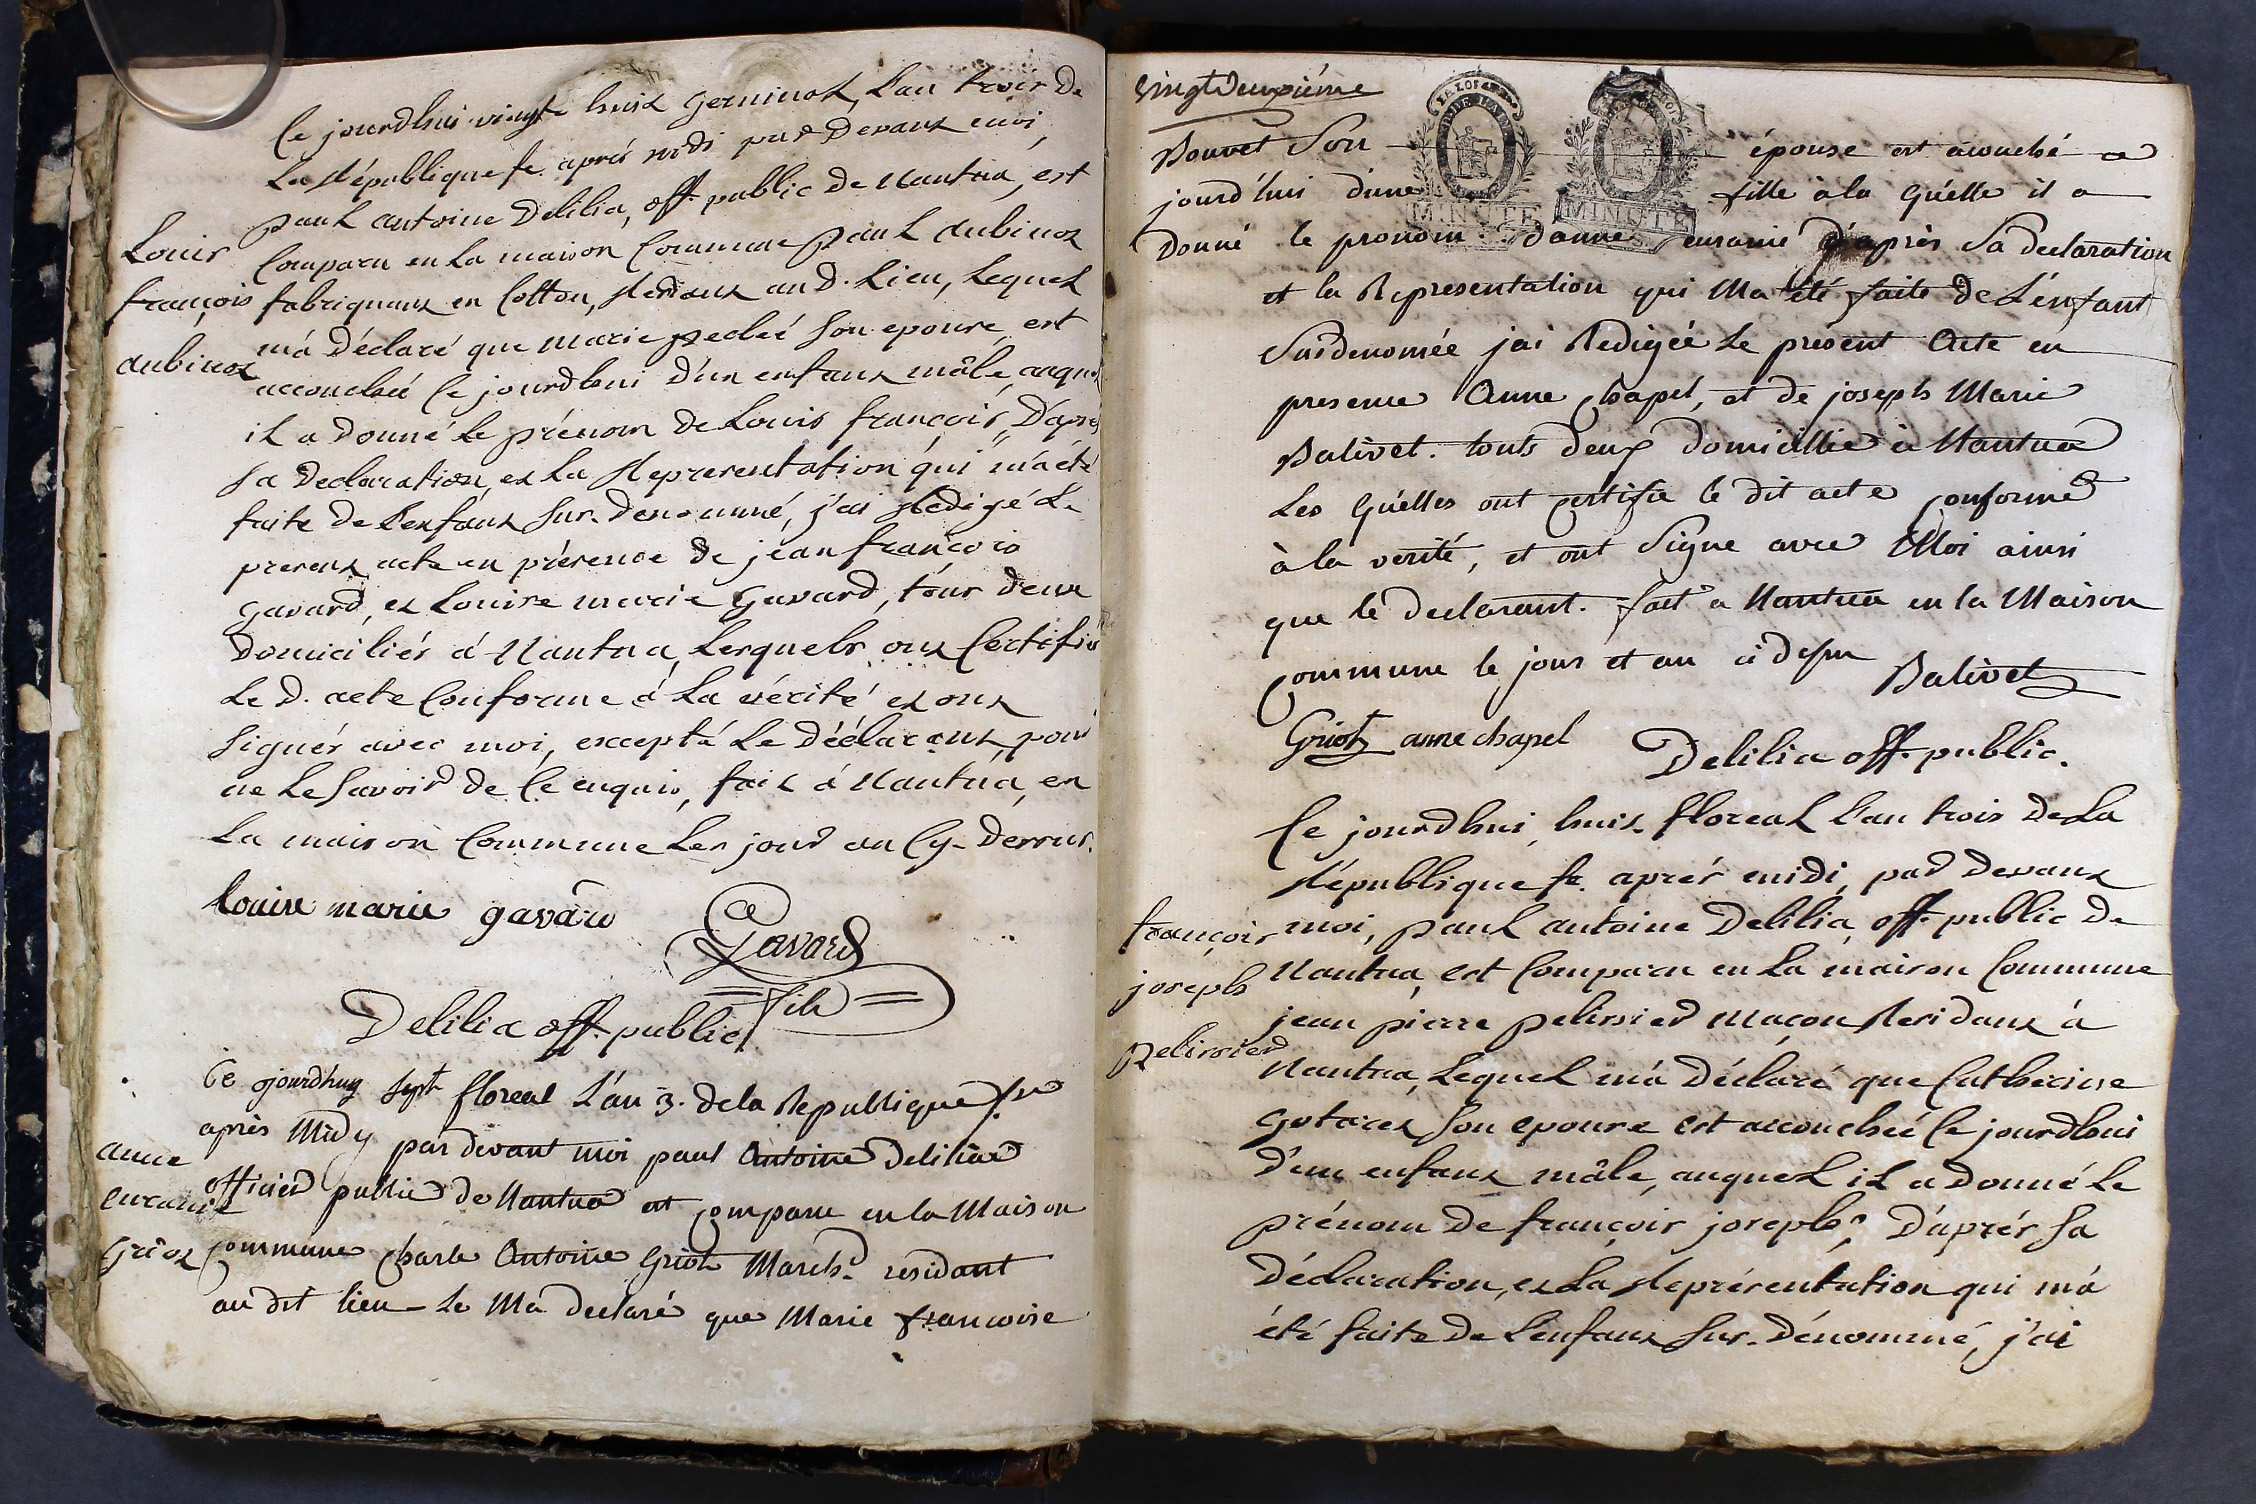 Ce jourdhui vingt huit germinal, L'an trois De
La République fe. après midi par devant moi,
paul antoine Delilia, off. public De Nantua, est
Comparu en La maison Commune paul aubinot
fabriquant en Cotton, Résidant au D. Lieu, Lequel
m'a Déclaré que marie peclet Son epouse, est
accouchée Ce jourdhui D'un enfant mâle, auquel
il a Donné le prénom De Louis françois, D'après
Sa Déclaration, et La Représentation qui m'a été
faite De L'enfant Sur-Dénommé, j'ai Rédigé Le
présent acte en présence De jean françois
gavard, et Louise marie gavard, tous deux
Domiciliés à Nantua, Lesquels ont Certifié
Le D. acte Conforme à La vérité et ont
Signés avec moi, excepté Le Déclarant, pour
ne Le Savoir De Ce enquis, fait à Nantua, en
La maison Commune Les jour an Cy-Dessus.
Louis
françois
aubinot
louise marie gavard
Gavard
fils
Delilia off. public
Ce ojourdhuy Sept floreal L'an 3. de la Republique fse
après Midy par devant moi paul Antoine Delilia
officier public de Nantua est comparu en la Maison
commune Charle Antoine Griot March.d residant
au dit lieu le Ma declaré que Marie francoise
anne
eucarie
Griot
vingt Deuxiéme
Bouvet Son épouse est acouché ce
jourd'hui d'une fille à la Quelle il a
Donné le pronom d'anne eucarie d'après Sa declaration
et la Representation qui Ma été faite de L'enfant
Susdenomée jai Redigée Le présent Acte en
presence Anne Chapel, et de joseph Marie
Balivet. touts deux domicillié à Nantua
Les Quelles ont certifie le dit acte conforme
à la verité, et ont Signe avec Moi ainsi
que le declarant. fait a Nantua en la Maison
commune le jour et an ci dessu
Balivet
Griot anne chapel
Delilia off. public.
Ce jourdhui, huit floreal L'an trois De La
République fe. après midi, par Devant
moi, paul antoine Delilia, off. public De
Nantua, est Comparu en La maison Commune
jean pierre pelissier maçon Résidant à
Nantua, Lequel m'a Déclaré que Catherine
Son epouse est accouchée Ce jourdhui
D'un enfant mâle, auquel il a Donné Le
prénom De françois joseph, D'après Sa
Déclaration, et La Représentation qui m'a
été faite De L'enfant Sur-Dénommé, j'ai
françois
joseph
pelissier
MINUTE
MINUTE